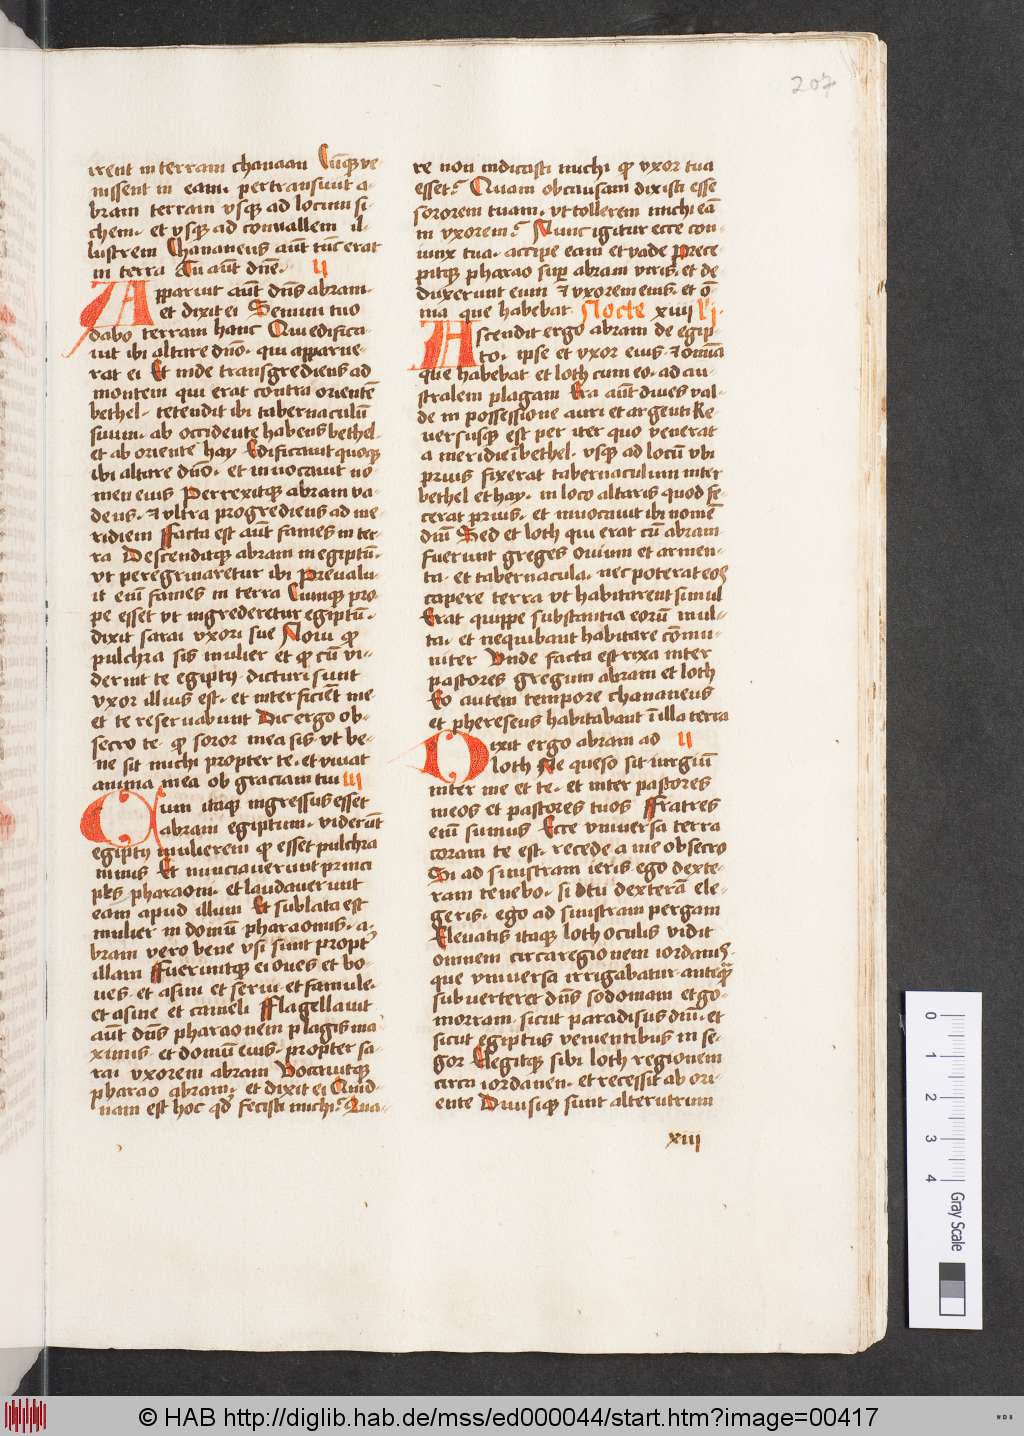 207
irent in terram chanaan Cūq̄ ve
nissent in eam· pertransiuit a-
bram terram vsq̄ ad locum si-
chem· et vsq̄ ad conuallem il-
lustrem Chananeus aūt tūc erat
in terra Tu aūt dn̄e· ij
Apparuit aūt dn̄s abram·
et dixit ei Semini tuo
dabo terram hanc Qui edifica-
uit ibi altare dn̄o· qui apparue-
rat ei Et inde transgrediens ad
montem qui erat contra orientē
bethel· tetendit ibi tabernaculū
suum· ab occidente habens bethel
et ab oriente hay Edificauit quoq̄
ibi altare dn̄o· et inuocauit no-
men eius Perrexitq̄ abram va-
dens· et vltra progrediens ad me-
ridiem ffacta est aūt fames in ter-
ra Descenditq̄ abram in egiptū·
vt peregrinaretur ibi Preualu-
it eni͞ fames in terra Cumq̄ pro-
pe esset vt ingrederetur egiptū·
dixit sarai vxori sue Noui ꝙ
pulchra sis mulier et ꝙ cū vi-
derint te egiptij· dicturi sunt
vxor illius est· et interficiēt me
et te reseruabunt Dic ergo ob-
secro te· ꝙ soror mea sis· vt be-
ne sit michi propter te· et viuat
anima mea ob graciam tui iij
Cum itaq̄ ingressus esset
abram egiptum· viderūt
egiptij mulierem ꝙ esset pulchra
nimis Et nunciauerunt princi
pes pharaoni· et laudauerunt
eam apud illum Et sublata est
mulier in domū pharaonis· a-
bram vero bene vsi sunt propt̓
illam ffueruntq̄ ei oues et bo-
ues· et asini et serui· et famule·
et asine et cameli fflagellauit
aūt dn̄s pharaonem plagis ma-
ximis· et domū eius· propter sa-
rai vxorem abram Vocauitq̄
pharao abram· et dixit ei Quid-
nam est hoc qd̓ fecisti michi? Qua-
re non indicasti michi ꝙ vxor tua
esset? Quam ob causam dixisti esse
sororem tuam· vt tollerem michi eā
in vxorem? Nunc igitur ecce con-
iunx tua· accipe eam et vade Prece
pitq̄ pharao sup̄ abram viris· et de
duxerunt eum et vxorem eius· et ō
nia que habebat Nocte xiiij L· j·
Ascendit ergo abram de egip-
to· ipse et vxor eius· et omīa
que habebat et loth cum eo· ad au-
stralem plagam Era aūt diues val-
de in possessione auri et argenti Re-
uersusq̄ est per iter quo venerat
a meridie ī bethel· vsq̄ ad locū vbi
prius fixerat tabernaculum inter
bethel et hay· in loco altaris quod fe-
cerat prius· et inuocauit ibi nomē
dn̄i Sed et loth qui erat cū abram
fuerunt greges ouium et armen-
ta· et tabernacula· nec poterat eos
capere terra vt habitarent simul
Erat quippe substantia eorū mul-
ta· et nequibant habitare com̄u-
niter Vnde facta est rixa inter
pastores gregum abram et loth
Eo autem tempore chananeus
et phereseus habitabant ī illa terra
Dixit ergo abram ad ij
loth Ne queso sit iurgiū
inter me et te· et inter pastores
meos et pastores tuos ffratres
eni͞ sumus Ecce vniuersa terra
coram te est· recede a me obsecro
Si ad sinistram ieris ego dexte-
ram tenebo· si tu dexterā ele-
geris· ego ad sinistram pergam
Eleuatis itaq̄ loth oculis vidit
omnem circa regionem iordanis·
que vniuersa irrigabatur· anteq̄
subuerteret dn̄s sodomam et go-
morram· sicut paradisus dn̄i· et
sicut egiptus venientibus in se-
gor Elegitq̄ sibi loth regionem
circa iordanen· et recessit ab ori-
ente Diuisiq̄ sunt alterutrum
xiij
0 1 2 3 4 Gray Scale
© HAB http://diglib.hab.de/mss/ed000044/start.htm?image=00417